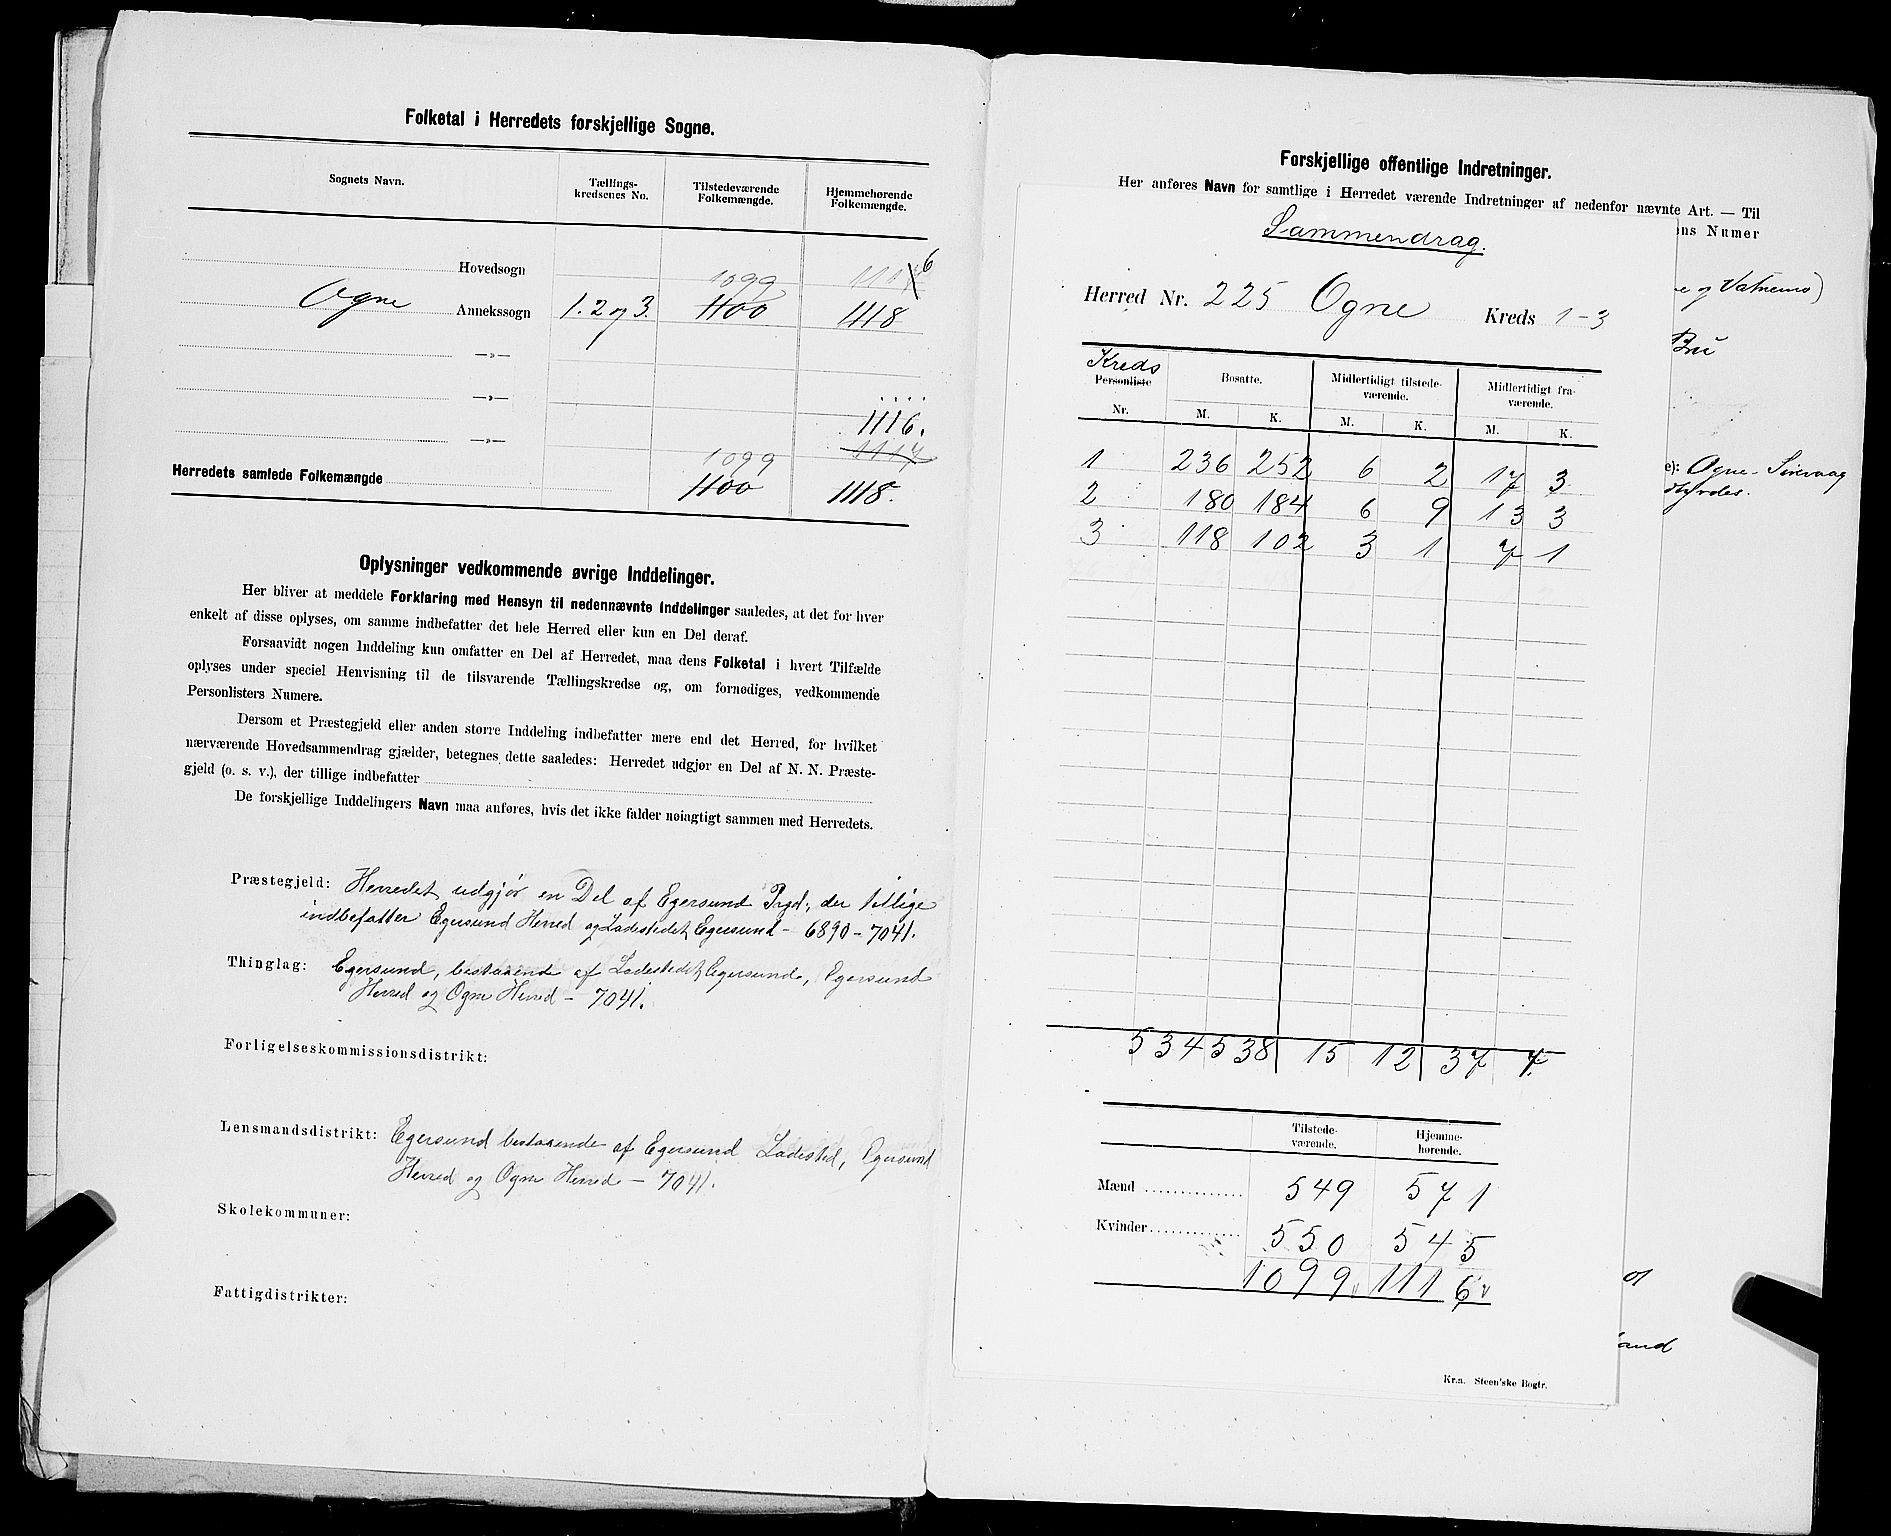 Folketal i Herredets forskjellige Sogne.
Sognets Navn. Tællings-kredsenes No. Tilstedeværende Folkemængde. Hjemmehørende Folkemængde.
Hovedsogn 1099 1117 6
Ogne Annekssogn 1. 2 og 3. 1100 1118
—»—
—»—
1116.
—»— 1099 1117
Herredets samlede Folkemængde 1100 1118.
Oplysninger vedkommende øvrige Inddelinger.
Her bliver at meddele Forklaring med Hensyn til nedennævnte Inddelinger saaledes, at det for hver
enkelt af disse oplyses, om samme indbefatter det hele Herred eller kun en Del deraf.
Forsaavidt nogen Inddeling kun omfatter en Del af Herredet, maa dens Folketal i hvert Tilfælde
oplyses under speciel Henvisning til de tilsvarende Tællingskredse og, om fornødiges, vedkommende
Personlisters Numere.
Dersom et Præstegjeld eller anden større Inddeling indbefatter mere end det Herred, for hvilket
nærværende Hovedsammendrag gjælder, betegnes dette saaledes: Herredet udgjør en Del af N. N. Præste-
gjeld (o. s. v.), der tillige indbefatter
De forskjellige Inddelingers Navn maa anføres, hvis det ikke falder nøiagtigt sammen med Herredets.
Præstegjeld: Herredet udgjør en Del af Egersund Prgd., der tillige
indbefatter Egersund Herred og Ladestedet Egersund - 6890 - 7041.
Thinglag: Egersund, bestaaende af Ladestedet Egersund, Egersund
Herred og Ogne Herred - 7041.
Forligelseskommissionsdistrikt:
Lensmandsdistrikt: Egersund bestaaende af Egersund Ladested, Egersund
Herred og Ogne Herred - 7041.
Skolekommuner:
Fattigdistrikter:
Forskjellige offentlige Indretninger.
Her anføres Navn for samtlige i Herredet værende Indretninger af nedenfor nævnte Art. — Til
ns Numer
Sammendrag.
e og Vatnemo)
Herred Nr. 225 Ogne Kreds 1-3
Bru
Kreds
Personliste Nr. Bosatte. Midlertidigt tilstede-værende. Midlertidigt fra-værende.
M. K. M. K. M. K.
1 236 252 6 2 17 3
e): Ogne - Sirevaag
2 180 184 6 9 13 3
3 118 102 3 1 7 1
534 538 15 12 37 7.
Tilstede-værende. Hjemme-hørende.
Mænd 549 571
Kvinder 550 545
1099 1116
and
Kr.a. Steen'ske Bogtr.